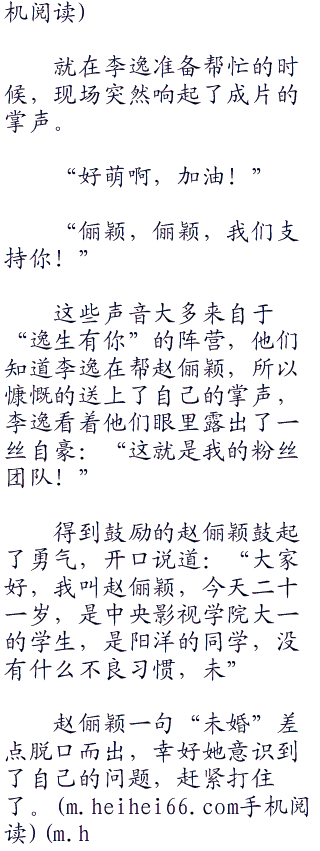 机阅读)
就在李逸准备帮忙的时
候，现场突然响起了成片的
掌声。
“好萌啊，加油！”
“俪颖，俪颖，我们支
持你！”
这些声音大多来自于
“逸生有你”的阵营，他们
知道李逸在帮赵俪颖，所以
慷慨的送上了自己的掌声，
李逸看着他们眼里露出了一
丝自豪：“这就是我的粉丝
团队！”
得到鼓励的赵俪颖鼓起
了勇气，开口说道：“大家
好，我叫赵俪颖，今天二十
一岁，是中央影视学院大一
的学生，是阳洋的同学，没
有什么不良习惯，未”
赵俪颖一句“未婚”差
点脱口而出，幸好她意识到
了自己的问题，赶紧打住
了。(m.heihei66.com手机阅
读)(m.h